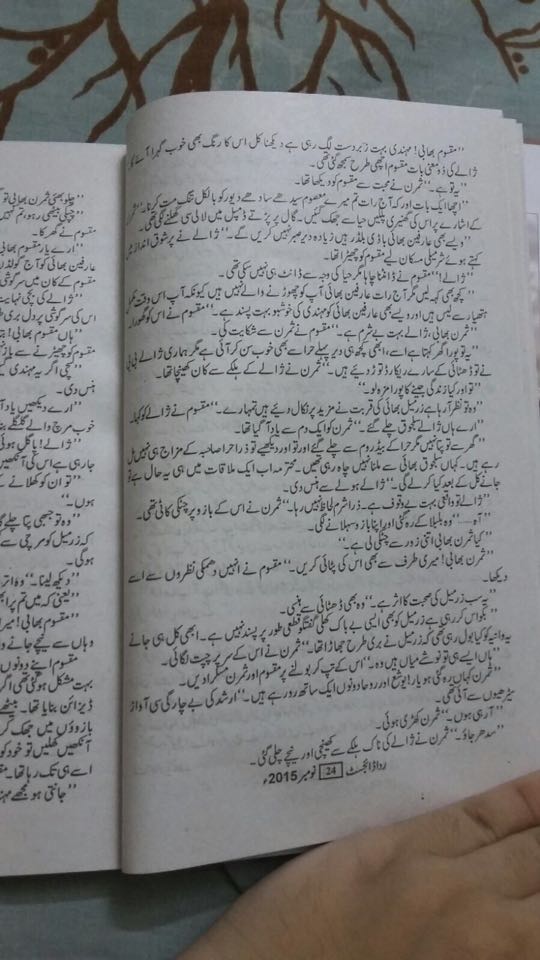 "مقسوم بھابی! مہندی بہت زبردست لگ رہی ہے دیکھنا کل اس کا رنگ بھی خوب گہرا آئے گا۔
ژالے کی ذو معنی بات مقسوم اچھی طرح سمجھ گئی تھی۔
"یہ تو ہے۔" ثمرن نے محبت سے مقسوم کو دیکھا تھا۔
"اچھا ایک بات اور کہ آج رات تم میرے معصوم سیدھے سادھے دیور کو بالکل تنگ مت کرنا۔" ثمرن
کے اشارے پر اس کی گھنیری پلکیں حیا سے جھک گئیں۔ گال پر پڑتے ڈمپل میں لالی سی گھلنے لگی تھی۔
"ویسے بھی عارفین بھائی باڈی بلڈر ہیں زیادہ دیر صبر نہیں کریں گے۔" ژالے نے پرشوق انداز میں
کہتے ہوئے شرمیلی مسکان لیے مقسوم کو چھیڑا تھا۔
"ژالے!" مقسوم نے ڈانٹنا چاہا مگر حیا کی وجہ سے ڈانٹ ہی نہیں سکی تھی۔
"کچھ بھی کہہ لیں مگر آج رات عارفین بھائی آپ کو چھوڑنے والے نہیں ہیں کیونکہ آپ اس وقت مکمل
ہتھیار سے لیس ہیں اور ویسے بھی عارفین بھائی کو مہندی کی خوشبو بہت پسند ہے۔" مقسوم نے اس کو گھورا۔
"ثمرن بھابی، ژالے بہت بے شرم ہے۔" مقسوم نے ثمرن سے شکایت کی۔
"یہ تو پورا گھر کہتا ہے اسے، ابھی کچھ ہی دیر پہلے حرا سے بھی خوب سن کر آئی ہے مگر ہماری ژالے بی بی
نے ڈھٹائی کے سارے ریکارڈ توڑ دیئے ہیں۔" ثمرن نے ژالے کے ہلکے سے کان کھینچا تھا۔
"تو اور کیا زندگی جینے کا پورا مزہ لو۔"
"وہ تو نظر آرہا ہے زرمیل بھائی کی قربت نے مزید پر نکال دیئے ہیں تمہارے۔" مقسوم نے ژالے کو کہا۔
"ارے ہاں ژالے سلجوق چلے گئے۔" ثمرن کو ایک دم سے یاد آگیا تھا۔
"گھر سے تو پتا نہیں مگر حرا کے بیڈروم سے چلے گئے اور تو اور دیکھیے تو ذرا حرا صاحبہ کے مزاج ہی نہیں مل
رہے ہیں۔ کہاں سلجوق بھائی سے ملنا نہیں چاہ رہی تھیں۔ محترمہ اب ایک ملاقات میں ہی یہ حال ہے تو
جانے کل کے بعد کیا کر لے گی۔" ژالے ہولے سے ہنس دی۔
"ژالے تو واقعی بہت بے وقوف ہے۔ ذرا شرم لحاظ نہیں رہا۔" ثمرن نے اس کے بازو پر چٹکی کاٹی تھی۔
"آہ ۔۔۔۔" وہ بلبلا کے رہ گئی اور اپنا بازو سہلانے لگی۔
"کیا ثمرن بھابی اتنی زور سے چٹکی لی ہے۔"
"ثمرن بھابی! میری طرف سے بھی اس کی پٹائی کریں۔" مقسوم نے انہیں دھمکی نظروں سے اسے
دیکھا۔
"یہ سب زرمیل کی صحبت کا اثر ہے۔" وہ بھی ڈھٹائی سے ہنسی۔
"بکواس کر رہی ہے زرمیل کو بھی ایسی بے باک کھلی گفتگو قطعی طور پر پسند نہیں ہے۔ ابھی کل ہی جانے
یہ وانیہ کو کیا بول رہی تھی کہ زرمیل نے بری طرح جھاڑا تھا۔" ثمرن نے اس کے سر پر چپت لگائی۔
"ہاں ایسے ہی تو نوشے میاں ہیں وہ۔" اس کے تپ کر بولنے پر مقسوم اور ثمرن مسکرا دیں۔
"ثمرن کہاں رہ گئی ہو یار! یوشع اور روحا دونوں ایک ساتھ رو رہے ہیں۔" ارشد کی بے چارگی سی آواز
سیڑھیوں سے آئی تھی۔
"آرہی ہوں۔" ثمرن کھڑی ہوئی۔
"سدھر جاؤ۔" ثمرن نے ژالے کی ناک ہلکے سے کھینچی اور نیچے چلی گئی۔
ردا ڈائجسٹ 24 نومبر 2015ء
"چلو بھئی ثمرن بھابی تو
"چپکی بیٹھی رہو، تم نہیں
مقسوم نے گھر کا۔
"ارے یار مقسوم بھابی
عارفین بھائی کو آج گولڈن
مقسوم کے کان میں سرگوشی
"ژالے کی بچی نہایت
اس کی سرگوشی پر دل بری
"ہاں مقسوم بھابی!
مقسوم کو چھیڑنے سے باز
"سچی اگر یہ مہندی
ہنس دی۔
"ارے دیکھیں یاد آ
خوب مرچ والے گلگلے
"ژالے! پاگل ہوئی
جا رہی ہے اس کی آنکھیں
"تو ان کو کھلانے کے
ہوں۔"
"وہ تو جبھی پتا چلے گا
کہ زرمیل کو مرچی سے
ہوگی۔
"دیکھ لینا۔" وہ اترا
"یعنی کہ میں تم پر
"مقسوم بھابی! میرا
وہاں سے نیچے جانے و
مقسوم اپنے دونوں
بہت مشکل ہو گئی تھی اگر
ڈیزائن بنایا تھا۔ بیٹھے
بازوؤں میں جھک کر
آنکھیں کھلیں تو خود کو
اسے ہی تک رہا تھا۔
"جانتی ہو مجھے مہندی